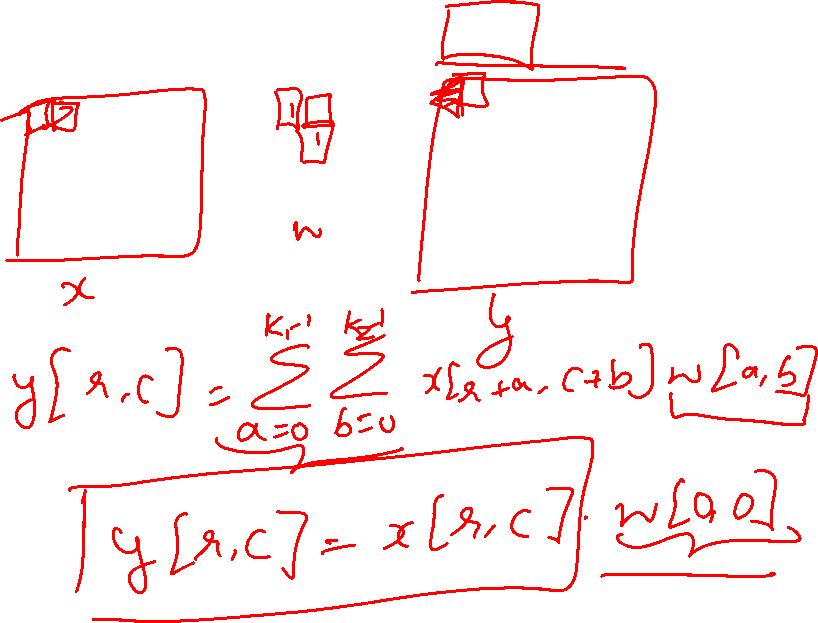 1
1
x
w
y
y[r,c] = \sum_{a=0}^{K_1-1} \sum_{b=0}^{K_2-1} x[r+a, c+b] w[a,b]
y[r,c] = x[r,c] · w[0,0]